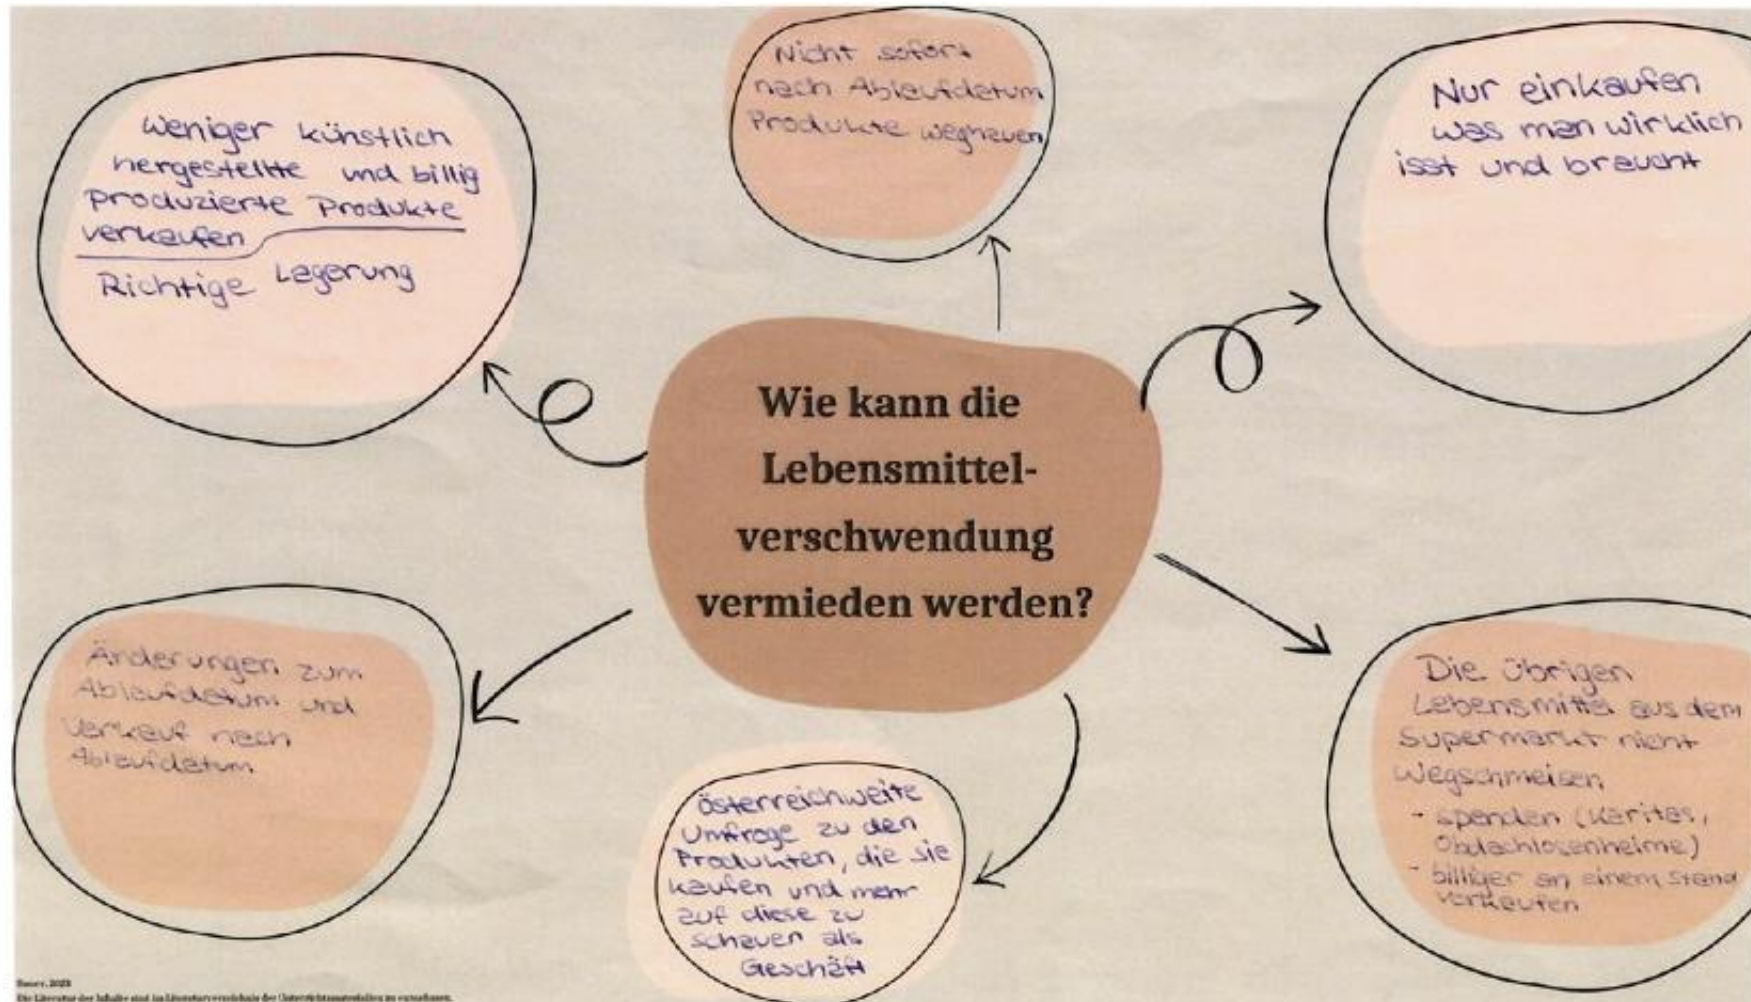 Weniger künstlich
hergestellte und billig
Produzierte Produkte
verkaufen
Richtige Lagerung
Nicht sofort
nach Ablaufdatum
Produkte weghauen
Nur einkaufen
was man wirklich
isst und braucht
Wie kann die
Lebensmittel-
verschwendung
vermieden werden?
Änderungen zum
Ablaufdatum und
Verkauf nach
Ablaufdatum
Österreichweite
Umfrage zu den
Produkten, die sie
kaufen und mehr
auf diese zu
schauen als
Geschäft
Die übrigen
Lebensmittel aus dem
Supermarkt nicht
wegschmeisen
- spenden (Karitas,
Obdachlosenheime)
- billiger an einem Stand
verkaufen
Bauer, 2023
Die Literatur der Inhalte sind im Literaturverzeichnis der Unterrichtsmaterialien zu entnehmen.